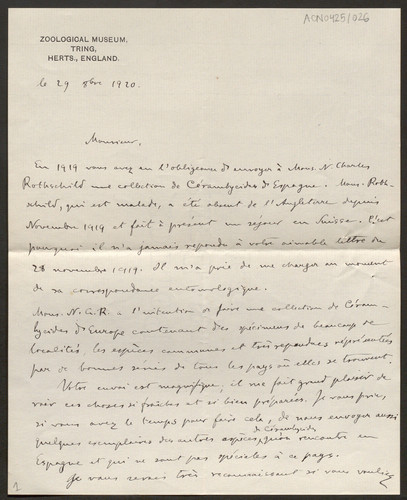 ACN0425/026
ZOOLOGICAL MUSEUM,
TRING,
HERTS., ENGLAND.
le 29 8bre 1920.
Monsieur,
En 1919 vous avez eu l'obligeance d'envoyer à Mons. N. Charles
Rothschild une collection de Cérambycides d'Espagne. Mons. Roth-
schild, qui est malade, a été absent de l'Angleterre depuis
Novembre 1919 et fait à présent un séjour en Suisse. C'est
pourquoi il n'a jamais repondu à votre aimable lettre du
28 novembre 1919. Il m'a prié de me charger au moment
de sa correspondance entomologique.
Mons. N. C. R. a l'intention de faire une collection de Céram-
bycides d'Europe contenant des spécimens de beaucoup de
localités, les espèces communes et très repandues représentées
par de bonnes séries de tous les pays où elles se trouvent.
Votre envoi est magnifique, il me fait grand plaisir de
voir ces choses si fraîches et si bien préparées. Je vous prie,
si vous avez le temps pour faire cela, de nous envoyer aussi
quelques exemplaires des autres espèces de Cérambycides qu'on rencontre en
Espagne et qui ne sont pas spéciales à ce pays.
Je vous serais très reconnaissant si vous vouliez